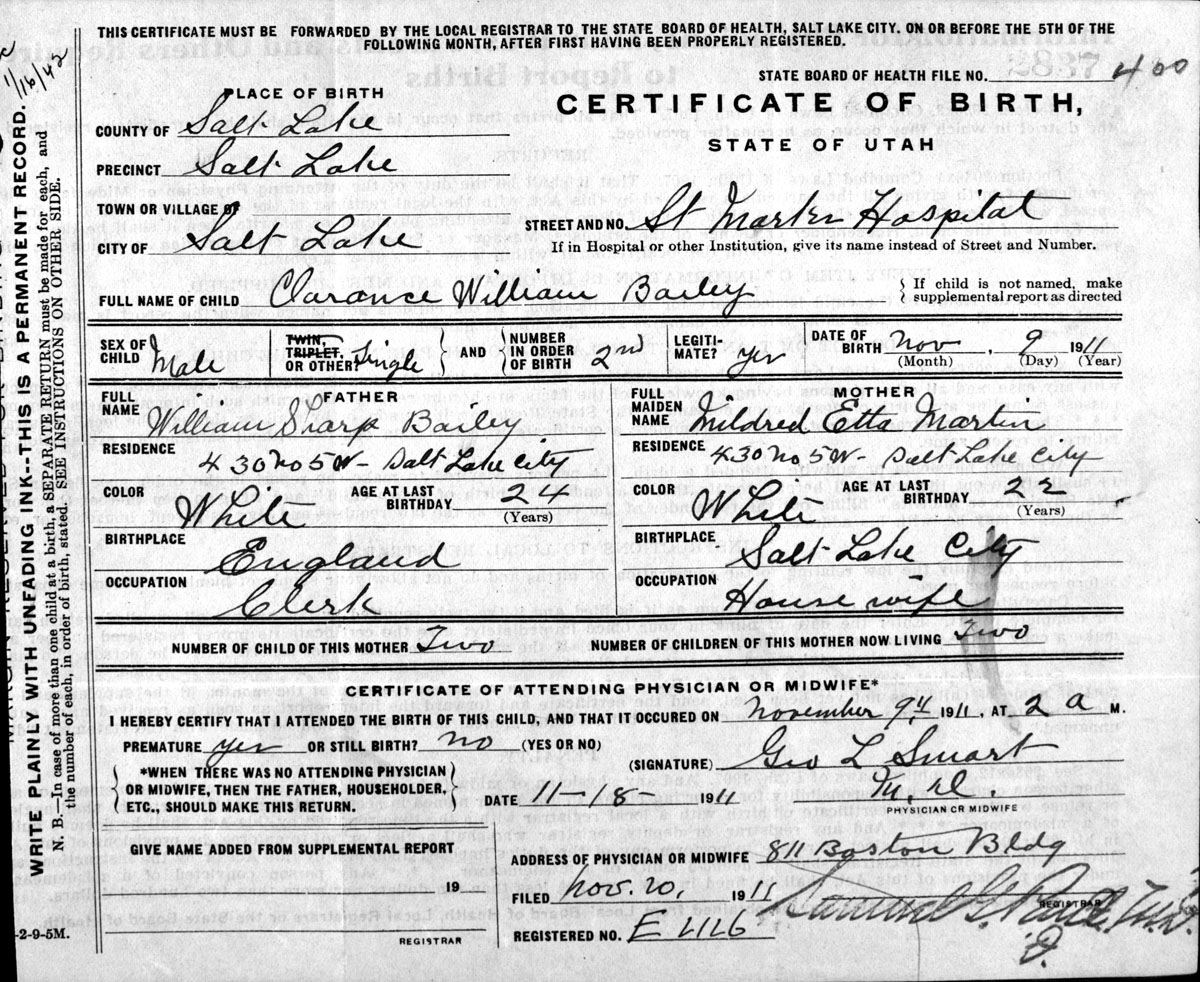 THIS CERTIFICATE MUST BE FORWARDED BY THE LOCAL REGISTRAR TO THE STATE BOARD OF HEALTH, SALT LAKE CITY. ON OR BEFORE THE 5TH OF THE
FOLLOWING MONTH, AFTER FIRST HAVING BEEN PROPERLY REGISTERED.
1/16/42
STATE BOARD OF HEALTH FILE NO. 400
PLACE OF BIRTH
CERTIFICATE OF BIRTH,
STATE OF UTAH
COUNTY OF Salt Lake
PRECINCT Salt Lake
TOWN OR VILLAGE of
STREET AND NO. St Marks Hospital
CITY OF Salt Lake
If in Hospital or other Institution, give its name instead of Street and Number.
FULL NAME OF CHILD Clarance William Bailey
If child is not named, make
supplemental report as directed
SEX OF CHILD Male
TWIN, TRIPLET, OR OTHER? Single
AND NUMBER IN ORDER OF BIRTH 2nd
LEGITI-MATE? yes
DATE OF BIRTH Nov, 9 1911
(Month) (Day) (Year)
FATHER
FULL NAME William Sharp Bailey
RESIDENCE 430 no 5 W- Salt Lake City
COLOR White
AGE AT LAST BIRTHDAY 24 (Years)
BIRTHPLACE England
OCCUPATION Clerk
MOTHER
FULL MAIDEN NAME Mildred Etta Martin
RESIDENCE 430 no 5 W- Salt Lake City
COLOR White
AGE AT LAST BIRTHDAY 22 (Years)
BIRTHPLACE Salt Lake City
OCCUPATION House wife
NUMBER OF CHILD OF THIS MOTHER Two NUMBER OF CHILDREN OF THIS MOTHER NOW LIVING Two
CERTIFICATE OF ATTENDING PHYSICIAN OR MIDWIFE*
I HEREBY CERTIFY THAT I ATTENDED THE BIRTH OF THIS CHILD, AND THAT IT OCCURED ON November 9th 1911, AT 2 a M.
PREMATURE yes OR STILL BIRTH? no (YES OR NO)
(SIGNATURE) Geo L Smart
M. D.
PHYSICIAN OR MIDWIFE
*WHEN THERE WAS NO ATTENDING PHYSICIAN
OR MIDWIFE, THEN THE FATHER, HOUSEHOLDER,
ETC., SHOULD MAKE THIS RETURN.
DATE 11-18- 1911
GIVE NAME ADDED FROM SUPPLEMENTAL REPORT
19
REGISTRAR
ADDRESS OF PHYSICIAN OR MIDWIFE 811 Boston Bldg
FILED Nov. 20, 1911
REGISTRAR
REGISTERED NO.
-2-9-5M.
WRITE PLAINLY WITH UNFADING INK--THIS IS A PERMANENT RECORD.
N. B.—In case of more than one child at a birth, a SEPARATE RETURN must be made for each, and
the number of each, in order of birth, stated. SEE INSTRUCTIONS ON OTHER SIDE.